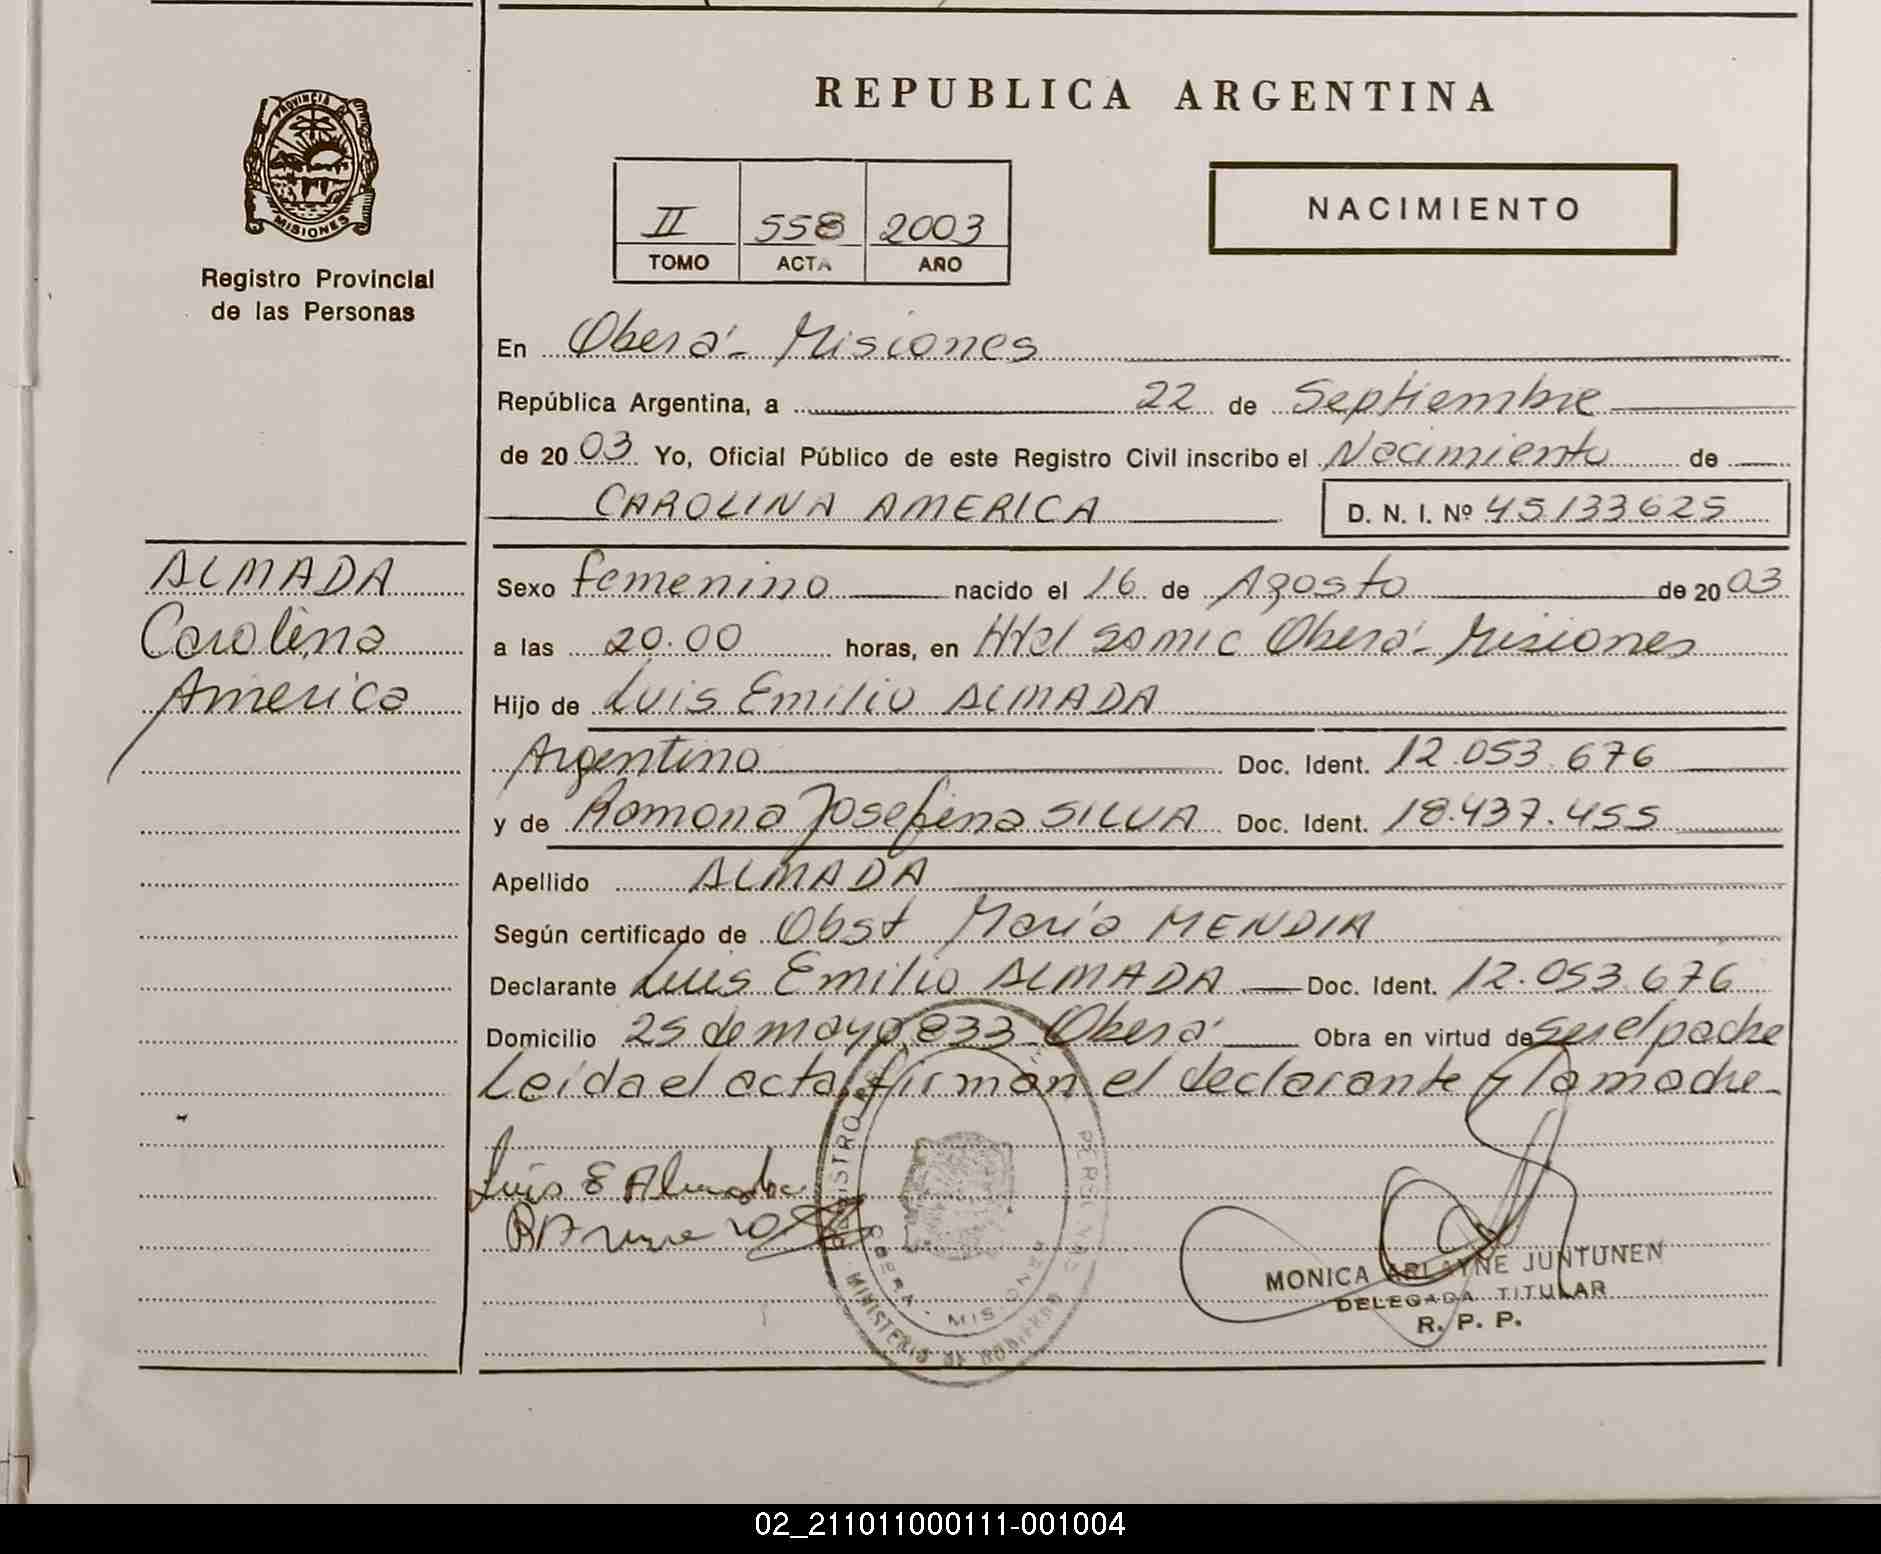 PROVINCIA DE
MISIONES
Registro Provincial
de las Personas
REPUBLICA ARGENTINA
II 558 2003
TOMO ACTA AÑO
NACIMIENTO
En Oberá - Misiones
República Argentina, a 22 de Septiembre
de 2003 Yo, Oficial Público de este Registro Civil inscribo el Nacimiento de
CAROLINA AMERICA D. N. I. Nº 45133625
ALMADA
Carolina
America
Sexo femenino nacido el 16 de Agosto de 2003
a las 20.00 horas, en Htal SAMIC Oberá - Misiones
Hijo de Luis Emilio ALMADA
Argentino Doc. Ident. 12.053.676
y de Ramona Josefina SILVA Doc. Ident. 18.437.455
Apellido ALMADA
Según certificado de Obst María MENDIA
Declarante Luis Emilio ALMADA Doc. Ident. 12.053.676
Domicilio 25 de mayo 833 Oberá Obra en virtud de ser el padre
Leída el acta, firman el declarante y la madre
Luis E Almada
OBERA - MISIONES
MINISTERIO DE GOBIERNO
MONICA ARLAYNE JUNTUNEN
DELEGADA TITULAR
R. P. P.
02_211011000111-001004